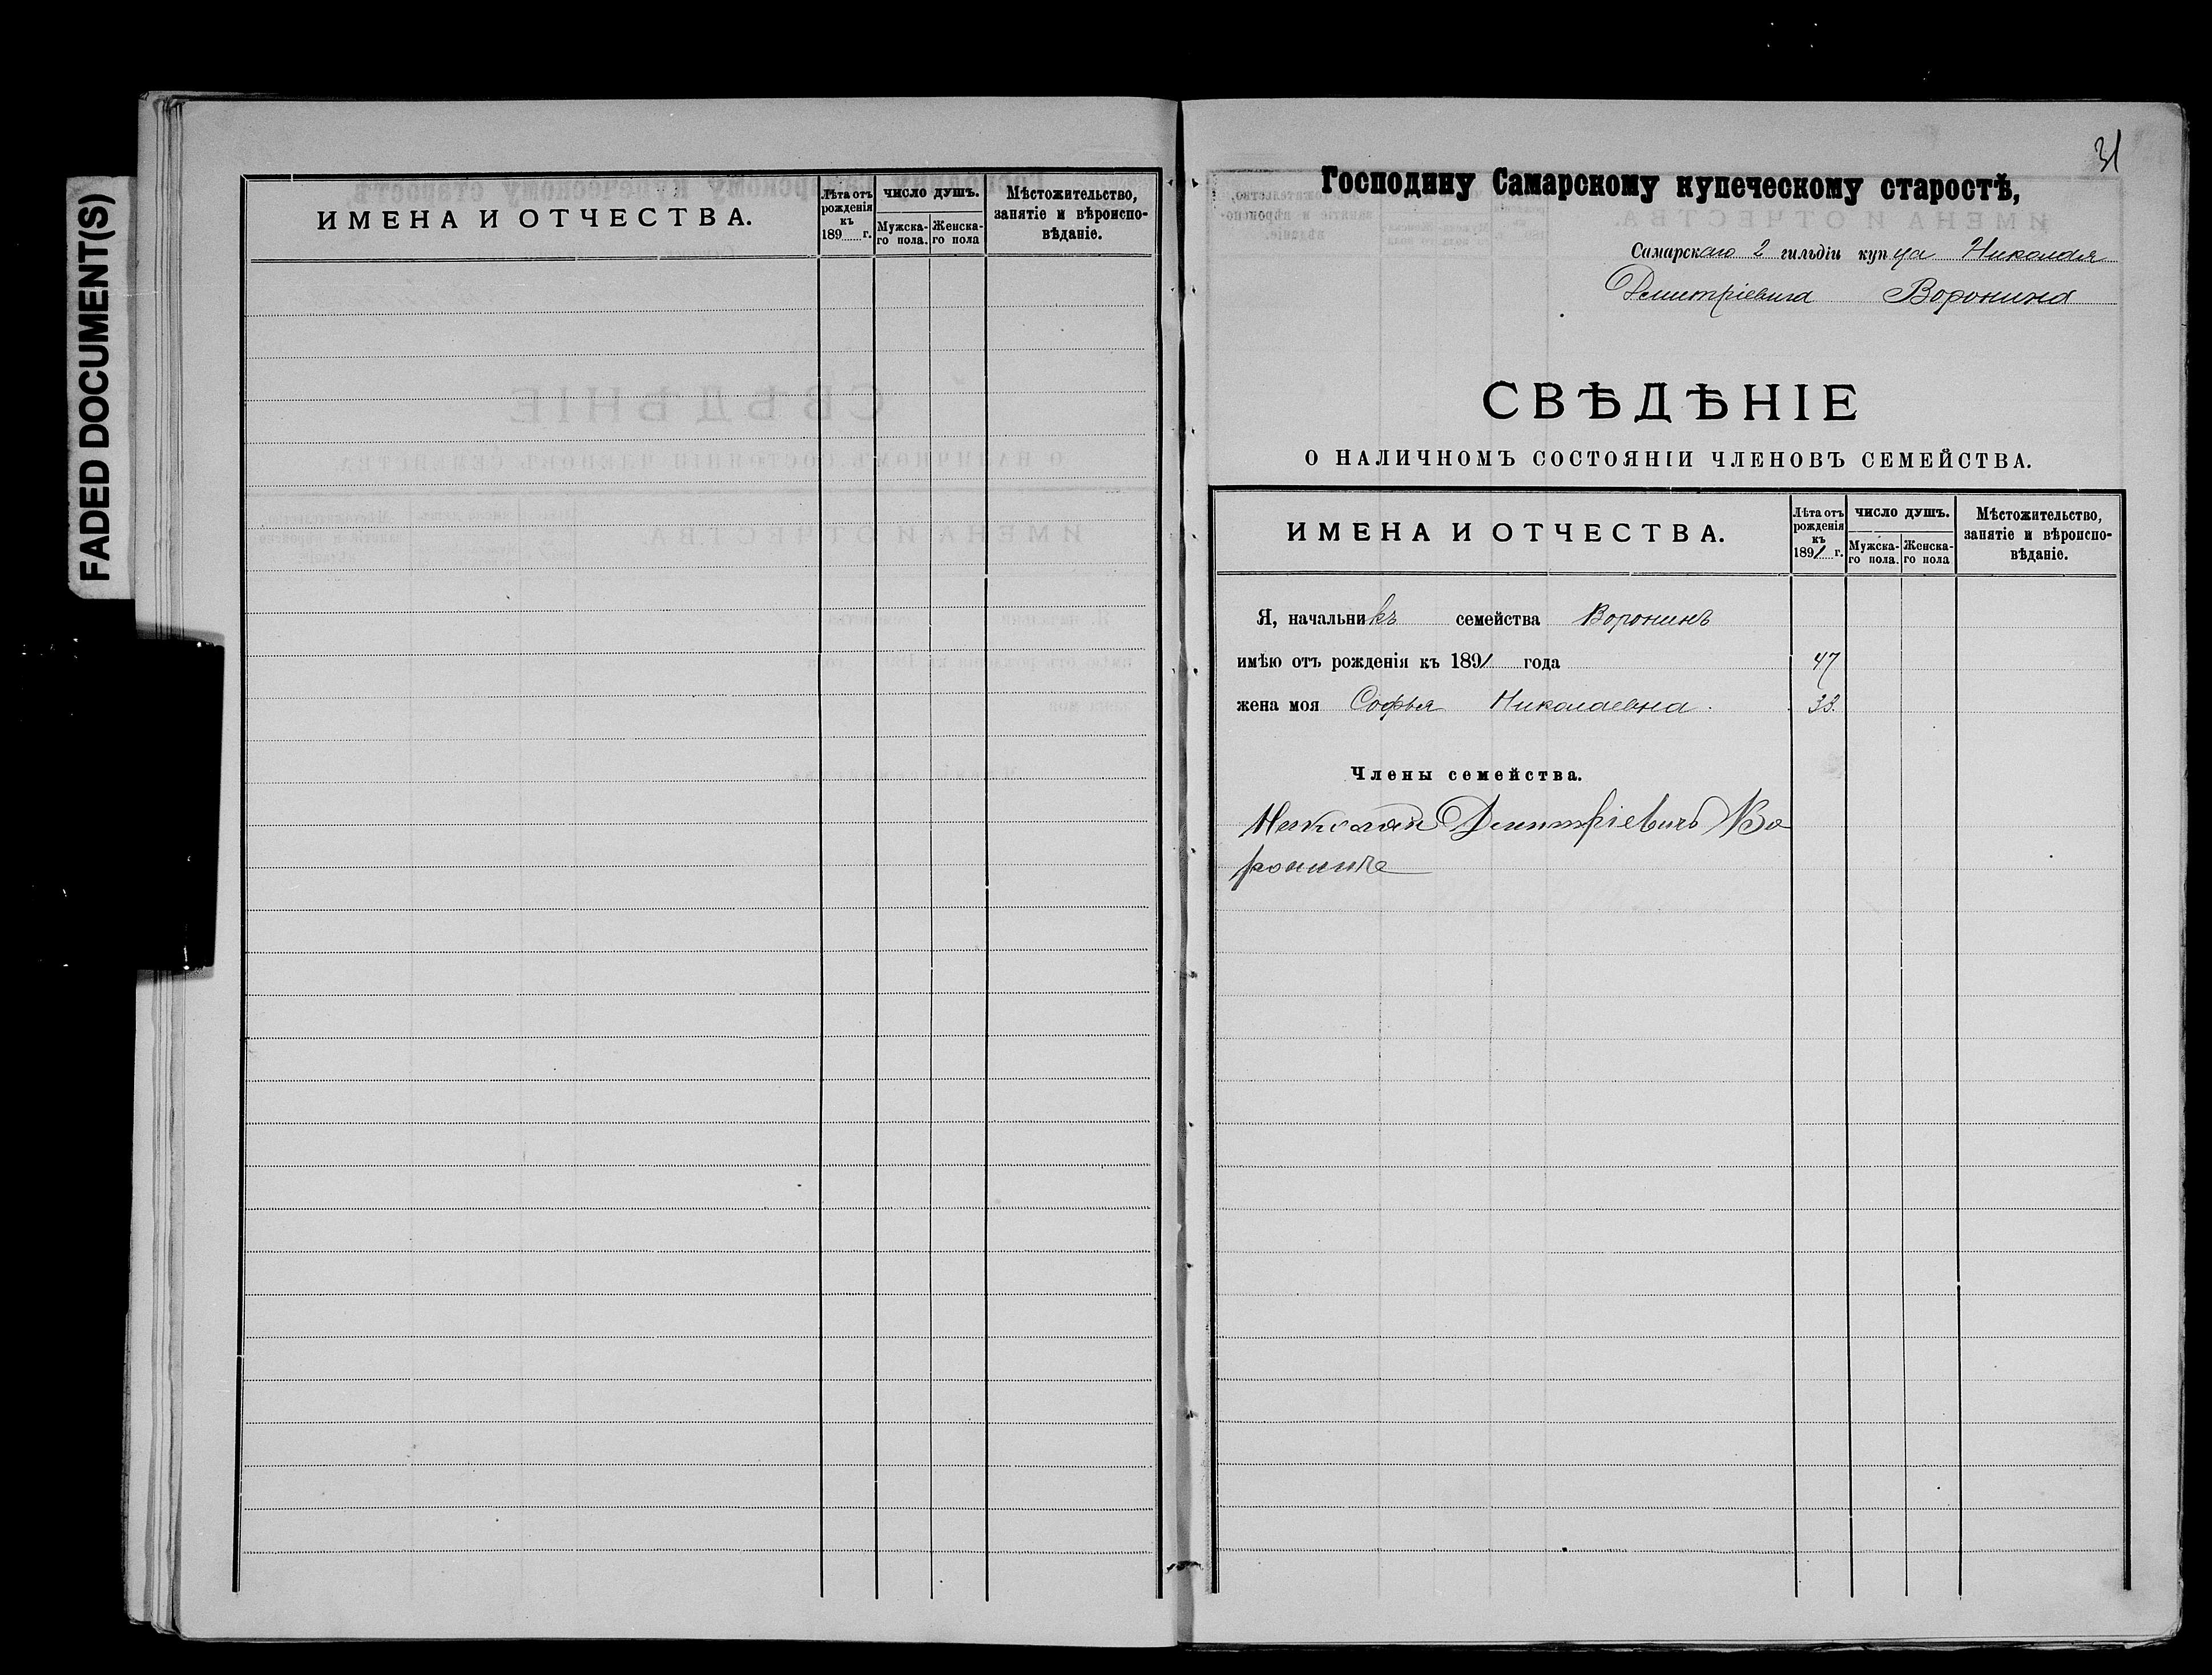 FADED DOCUMENT(S)
ИМЕНА И ОТЧЕСТВА.
Лѣта отъ рожденія къ 189 г.
ЧИСЛО ДУШЪ.
Мужска-го пола.
Женска-го пола
Мѣстожительство, занятіе и вѣроиспо-вѣданіе.
31
Господину Самарскому купеческому старостѣ,
Самарскаго 2 гильдіи купца Николая
Дмитріевича Воронина
СВѢДѢНІЕ
О НАЛИЧНОМЪ СОСТОЯНІИ ЧЛЕНОВЪ СЕМЕЙСТВА.
ИМЕНА И ОТЧЕСТВА.
Лѣта отъ рожденія къ 1891 г.
ЧИСЛО ДУШЪ.
Мужска-го пола.
Женска-го пола
Мѣстожительство, занятіе и вѣроиспо-вѣданіе.
Я, начальникъ семейства Воронинъ
имѣю отъ рожденія къ 1891 года 47
жена моя Софья Николаевна.
Члены семейства.
Николай Дмитріевичъ Во
ронинъ